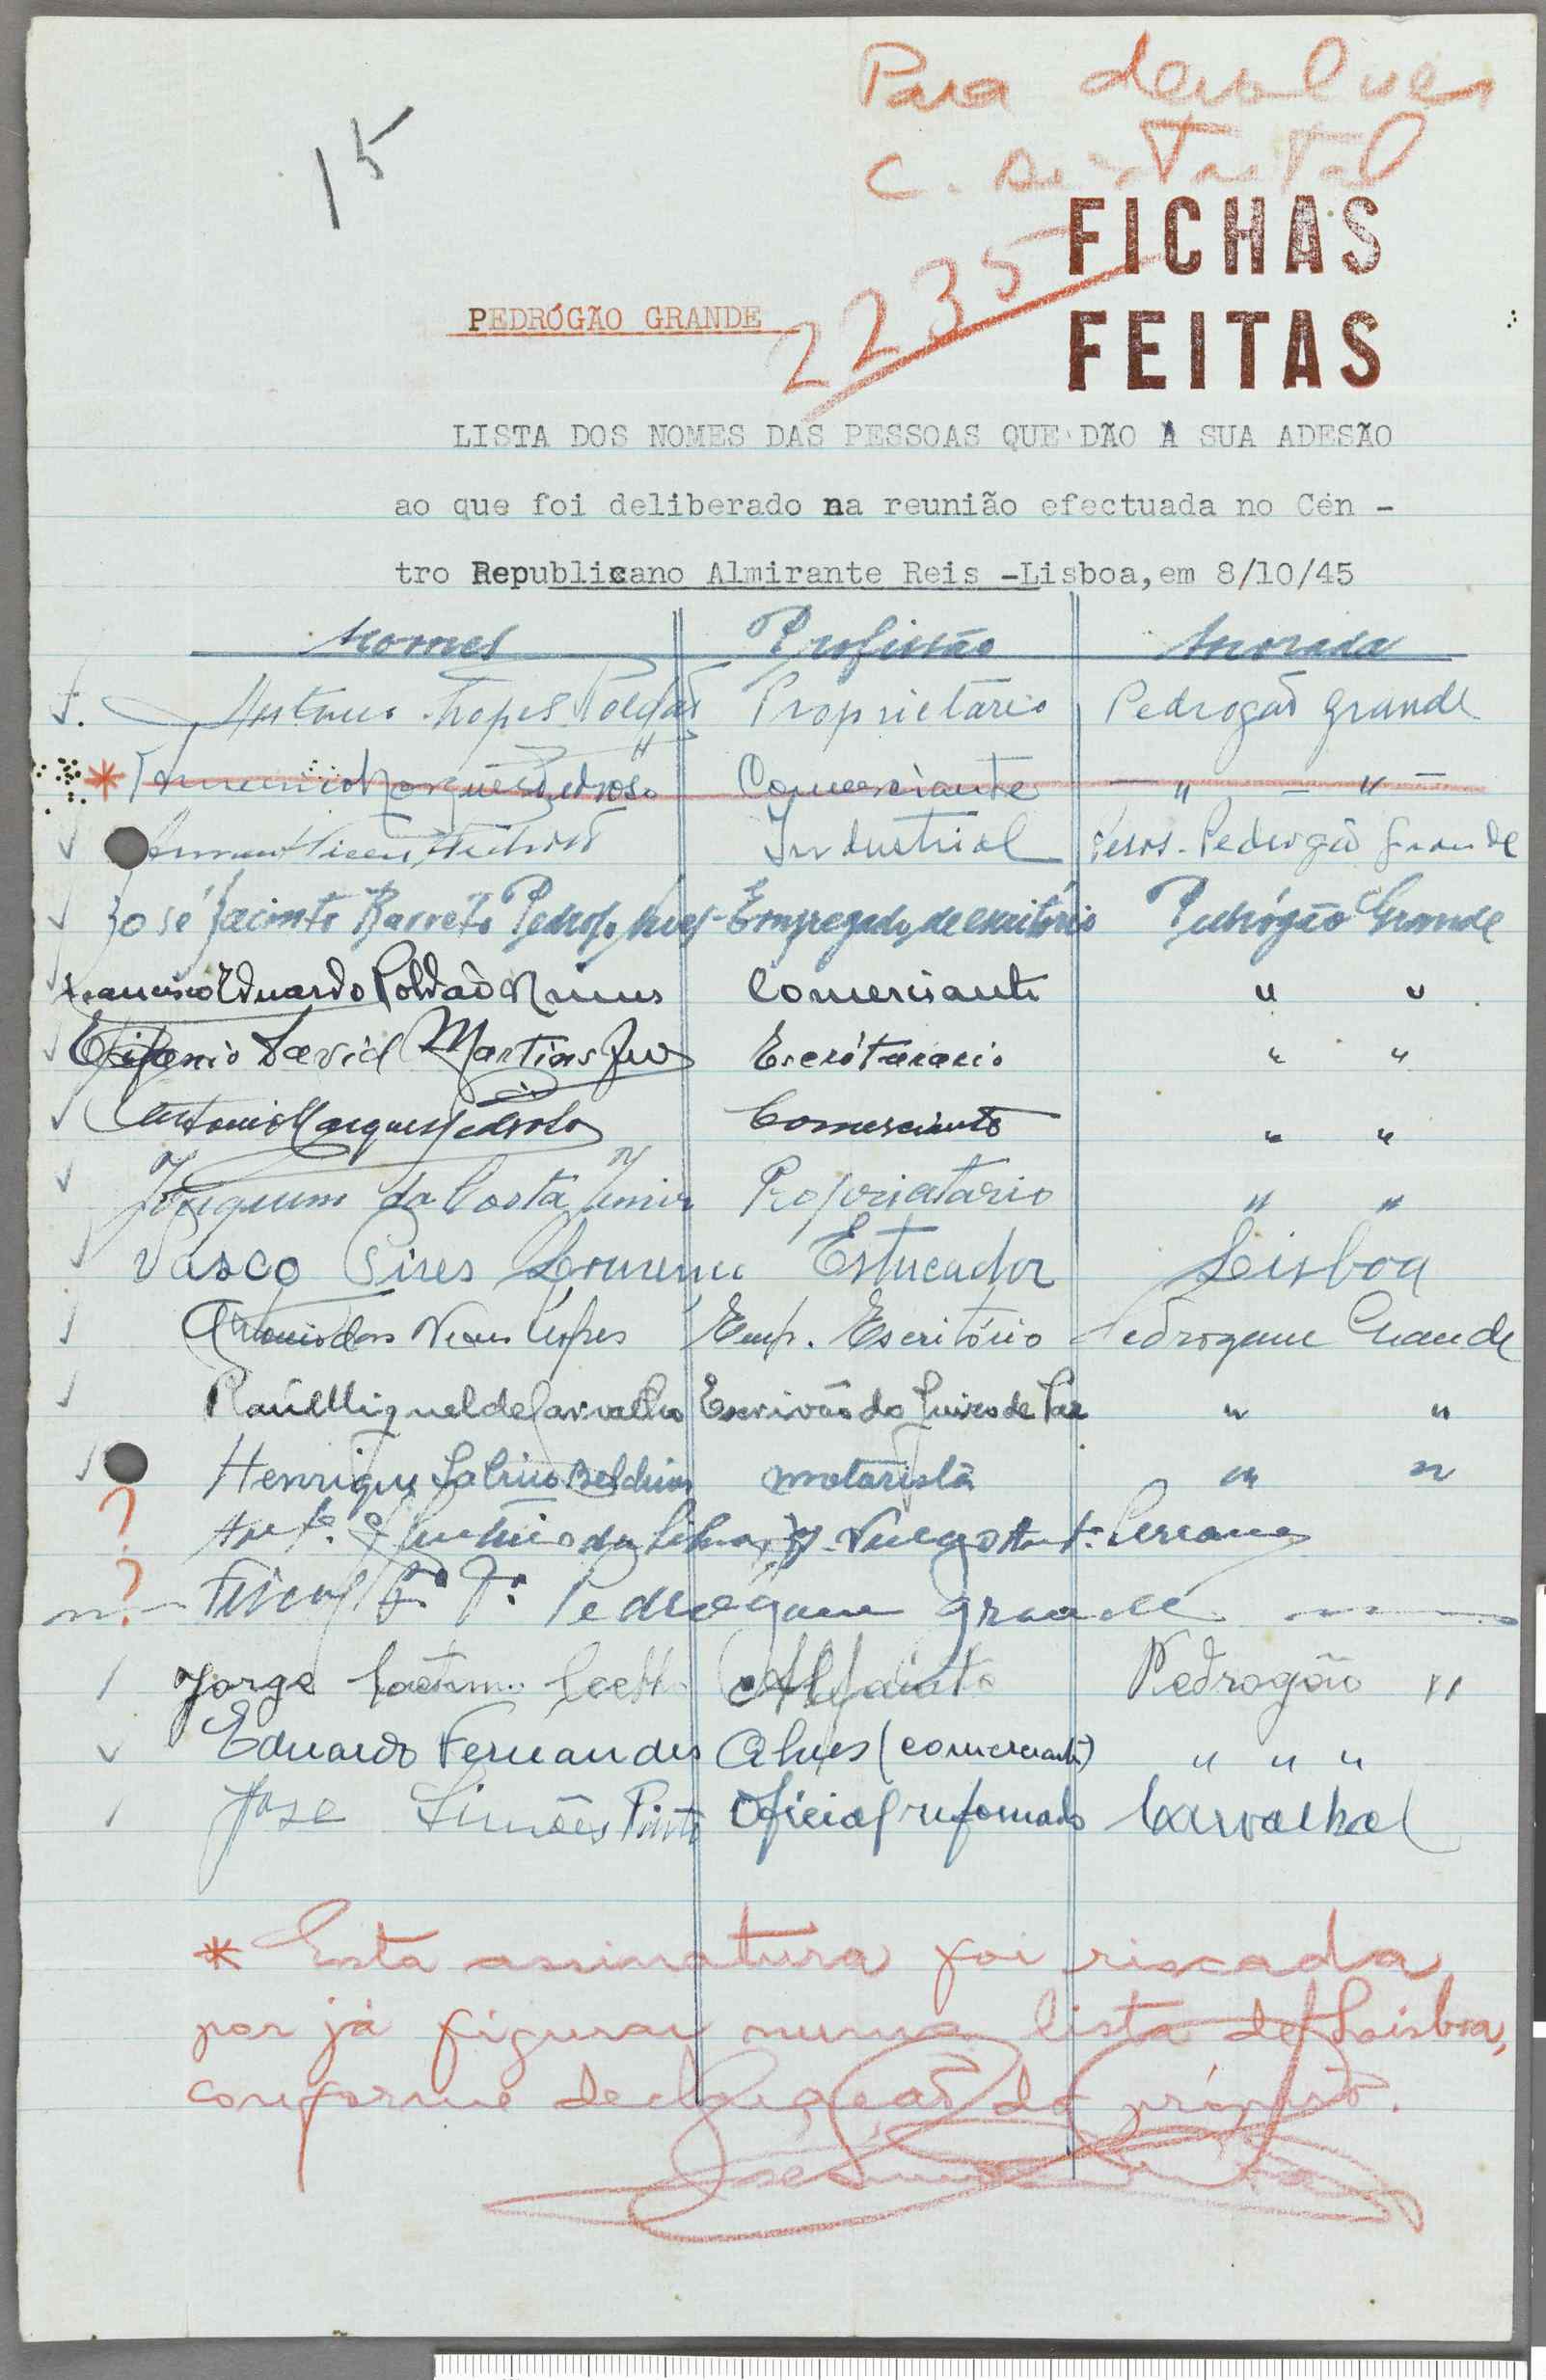 Para devolver
C. Distrital
15
FICHAS
FEITAS
2235
PEDRÓGÃO GRANDE
LISTA DOS NOMES DAS PESSOAS QUE DÃO A SUA ADESÃO
ao que foi deliberado na reunião efectuada no Cen -
tro Republicano Almirante Reis -Lisboa, em 8/10/45
Nomes Profissão Morada
Lopes Proprietario Pedrogão Grande
* Comerciante — " — " —
Industrial Pedrogão Grande
José Jacinto Barreto Pedroso Empregado de escritório Pedrógão Grande
Francisco Eduardo Poldão Nunes Comerciante " "
Epifanio David Martins Escriturario " "
Antonio Marques Pedroso Comerciante " "
Joaquim da Costa Junior Proprietario " "
Vasco Pires Lourenço Estucador Lisboa
Antonio das Neves Lopes Emp. Escritório Pedrogam Grande
Raúl Miguel de Carvalho Escrivão do Juizo de Paz " "
Henrique motorista " "
? da Silva
? Fiscal Pedrogam grande
Jorge Caetano Coelho Alfaiate Pedrogão "
Eduardo Fernandes Alves (comerciante) " " "
José Simões Pinto Oficial reformado Carvalhal
* Esta assinatura foi riscada
por já figurar numa lista de Lisboa,
conforme declaração do próprio.
José Simões Pinto